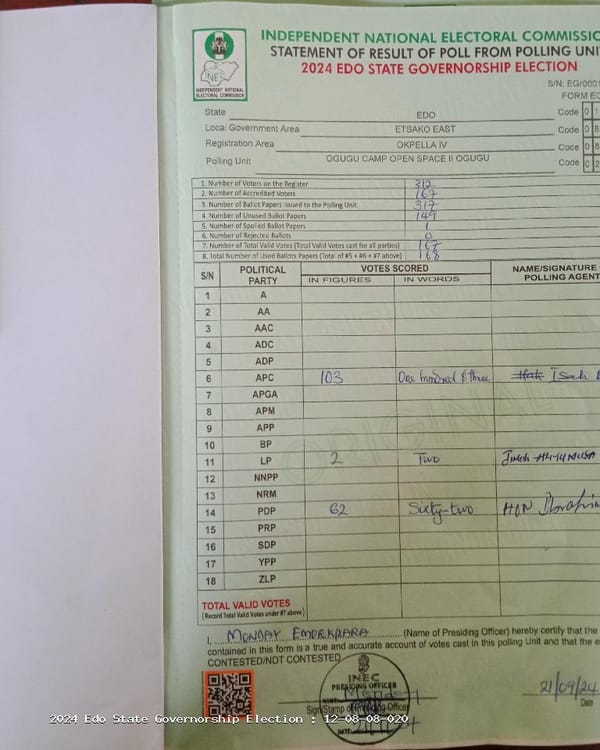 INDEPENDENT NATIONAL ELECTORAL COMMISSIO
STATEMENT OF RESULT OF POLL FROM POLLING UNI
2024 EDO STATE GOVERNORSHIP ELECTION
INEC
INDEPENDENT NATIONAL
ELECTORAL COMMISSION
S/N. EG/0001
FORM EC
State EDO Code 0 1
Local Government Area ETSAKO EAST Code 0 8
Registration Area OKPELLA IV Code 0 8
Polling Unit OGUGU CAMP OPEN SPACE II OGUGU Code 0 2
1. Number of Voters on the Register 312
2. Number of Accredited Voters 167
3. Number of Ballot Papers Issued to the Polling Unit 317
4. Number of Unused Ballot Papers 149
5. Number of Spoiled Ballot Papers 1
6. Number of Rejected Ballots 0
7. Number of Total Valid Votes (Total Valid Votes cast for all parties) 167
8. Total Number of Used Ballots Papers (Total of #5 + #6 + #7 above) 168
S/N POLITICAL PARTY VOTES SCORED NAME/SIGNATURE
IN FIGURES IN WORDS POLLING AGENT
1 A
2 AA
3 AAC
4 ADC
5 ADP
6 APC 103 One hundred & three Isah
7 APGA
8 APM
9 APP
10 BP
11 LP 2 Two
12 NNPP
13 NRM
14 PDP 62 Sixty-two HON Ibrahim
15 PRP
16 SDP
17 YPP
18 ZLP
TOTAL VALID VOTES
(Record Total Valid Votes under #7 above)
I, MONDAY (Name of Presiding Officer) hereby certify that the
contained in this form is a true and accurate account of votes cast in this polling Unit and that the e
CONTESTED/NOT CONTESTED
INEC
PRESIDING OFFICER
Sign Stamp of Presiding Officer
DATE
21/09/24
Date
2024 Edo State Governorship Election : 12-08-08-020